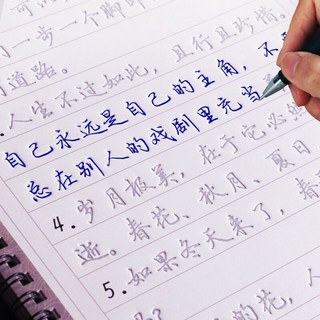 一步一个脚
且行且珍惜
道路。
人生不过如此，且行且珍惜。
自己永远是自己的主角，不
总在别人的戏剧里充当
4.岁月极美，在于它必然
逝。春花、秋月、夏日
5.如果冬天来了，春
的花，人